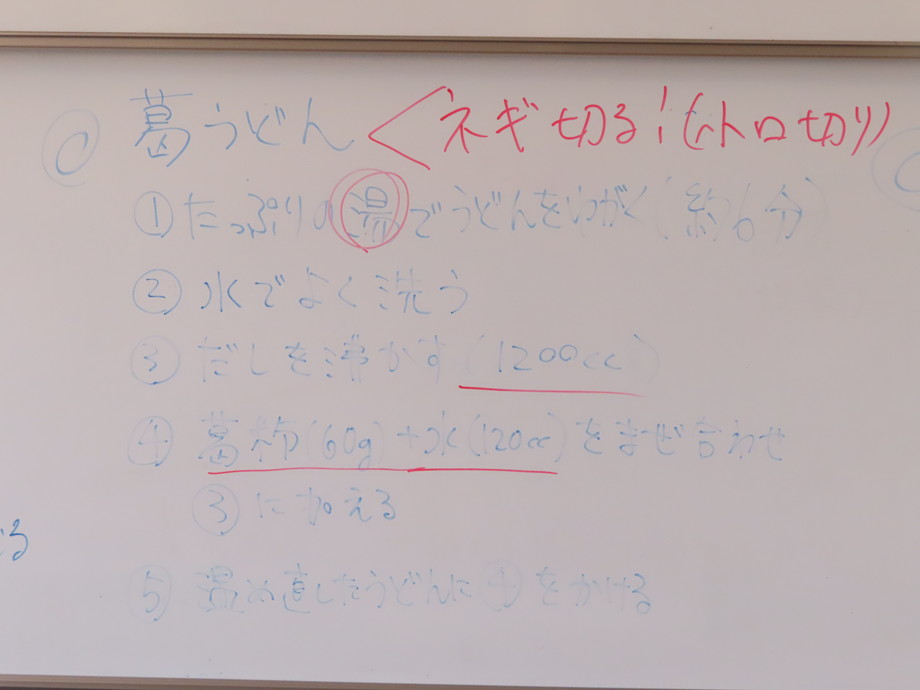 ○ 葛うどん <ネギ切る!(トロ切り)
① たっぷりの湯でうどんをゆがく(約6分)
② 水でよく洗う
③ だしを沸かす(1200cc)
④ 葛粉(60g)+水(120cc)をまぜ合わせ
③に加える
⑤ 温め直したうどんに④をかける
る